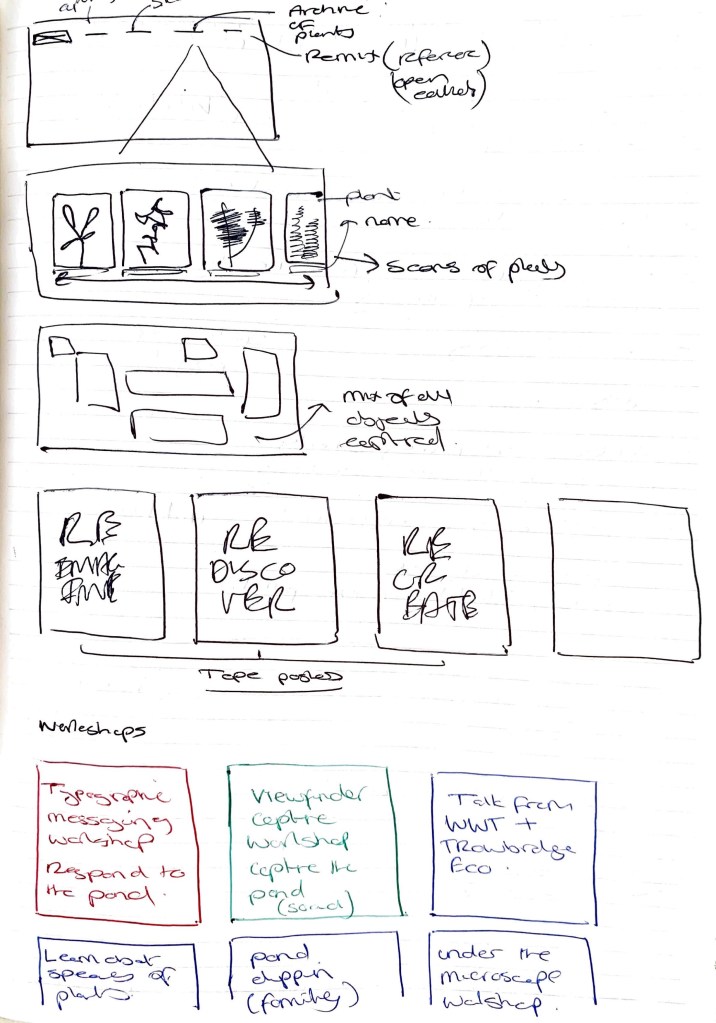 Archive
of
plants
Remix (referee)
(open
plant
name.
scans of plants
mix of all
objects
RE
IMAG
INE
RE
DISCO
VER
RE
CR
EATE
Tape posters
Workshops
Typographic
messaging
workshop
Respond to
the pond.
Viewfinder
captre
workshop
captre the
pond
(sand)
Talk from
WWT +
TROwbridge
Eco.
Learn about
species of
plants.
pond
dippin
(families)
under the
microscope
workshop.